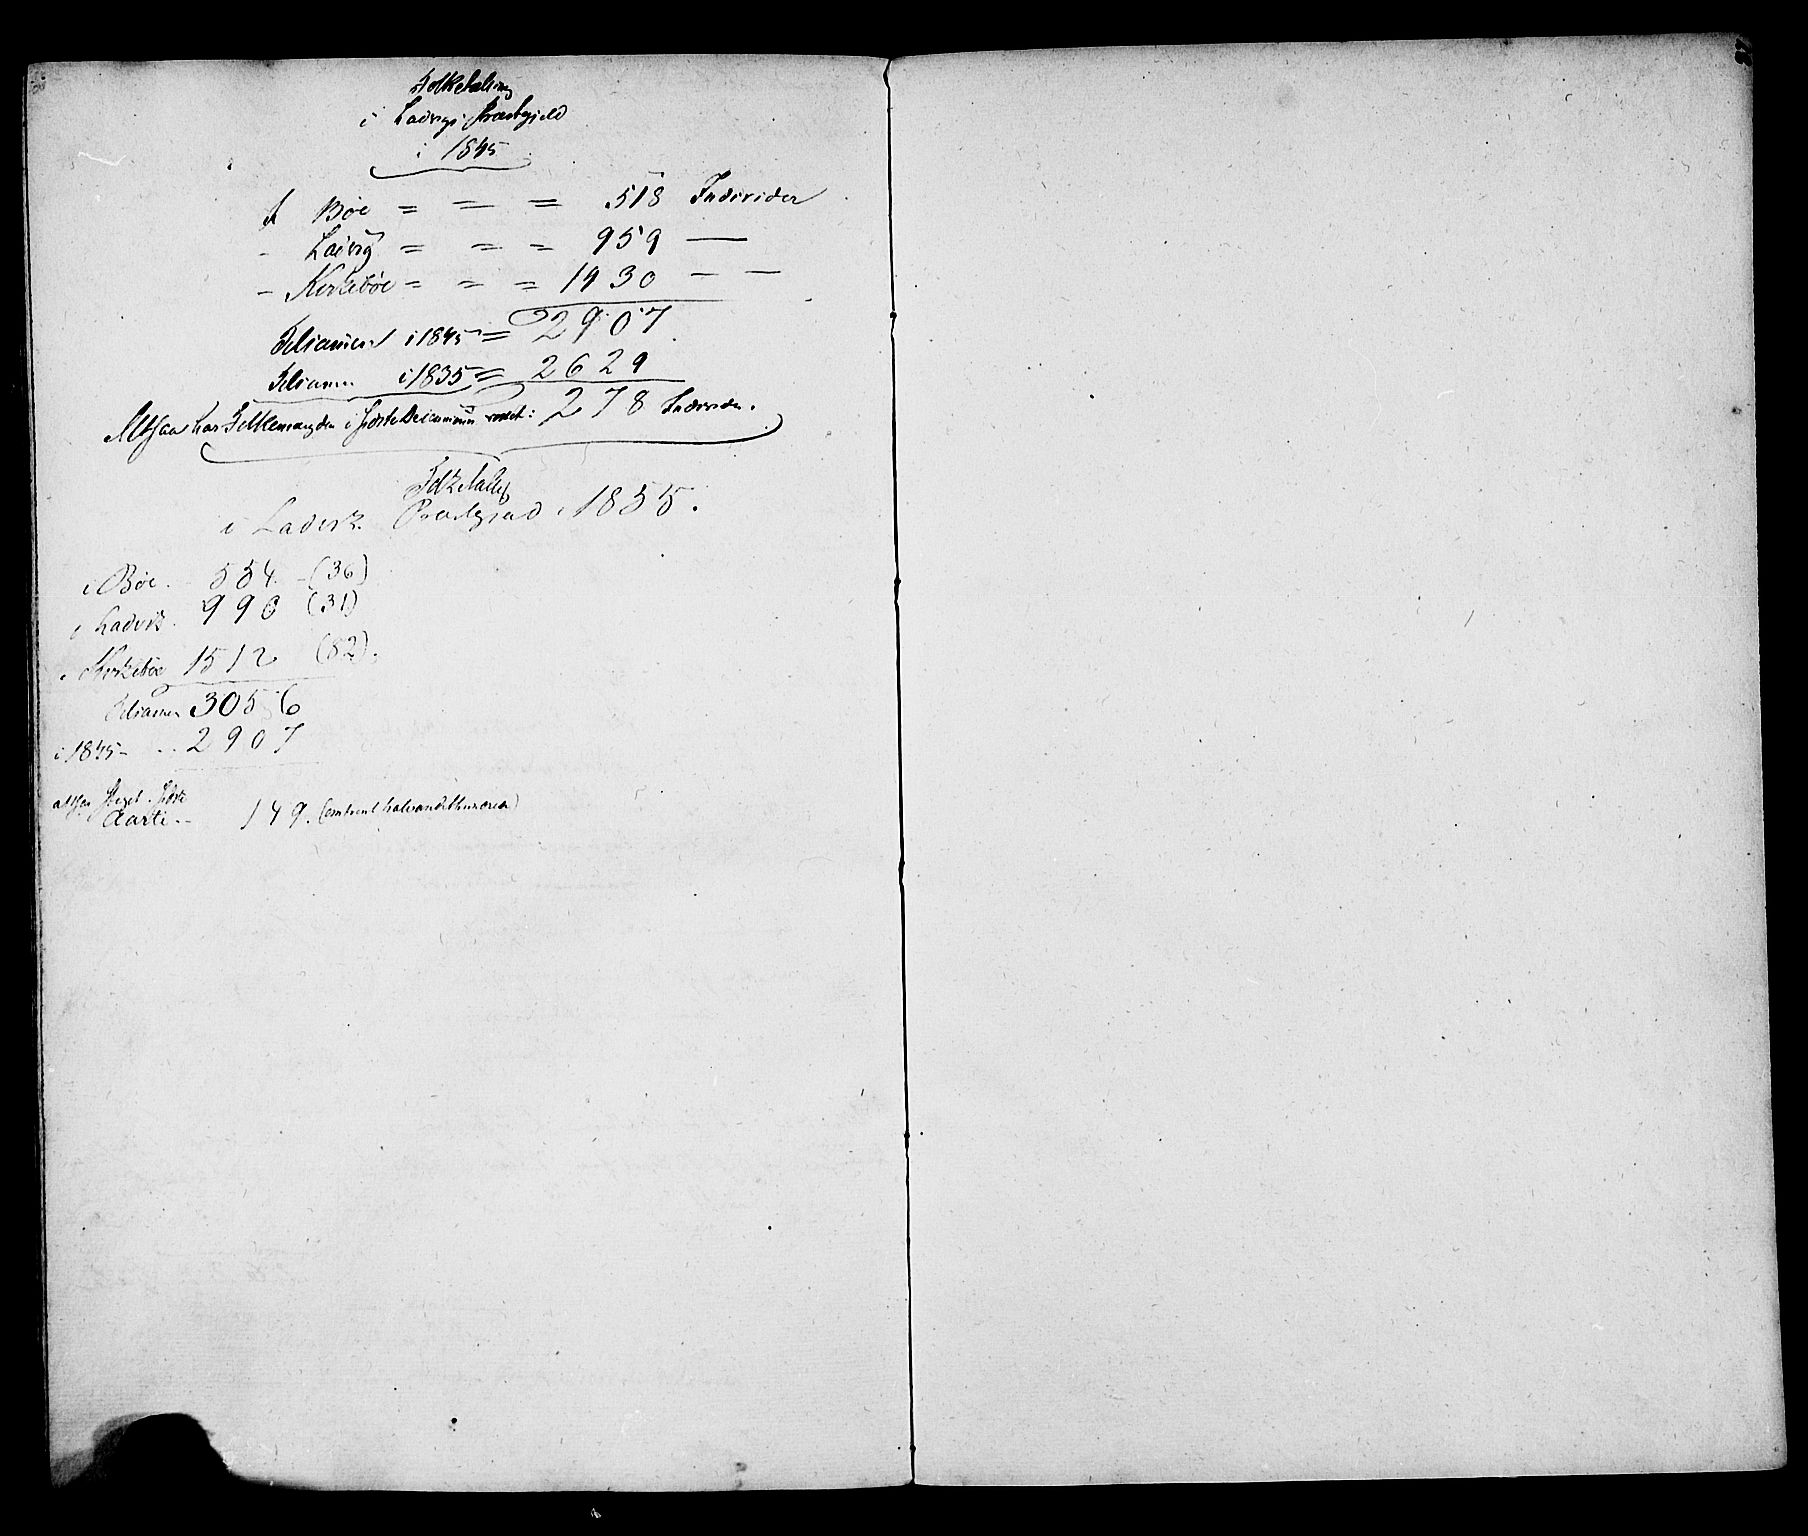 Folketaling
i Ladvigs Præstegjeld
i 1845
I Bøe = = = 518 Individer
- Ladvig = = = 959 —
- Kirkebøe = = = 1430 — —
Tilsammen i 1845 = 2907
Tilsammen i 1835 = 2629
Altsaa har Folkemængden i sidste Decennium voxet: 278 Individer.
Folketallet
i Ladvik Præstegjeld i 1855.
i Bøe. 554. - (36)
i Ladvik. 990 (31)
i Kirkebøe 1512 (82).
Tilsammen 3056
i 1845 - - - 2907
altsaa steget i sidste
Aarti - - 149. (omtrent halvandethundrede)